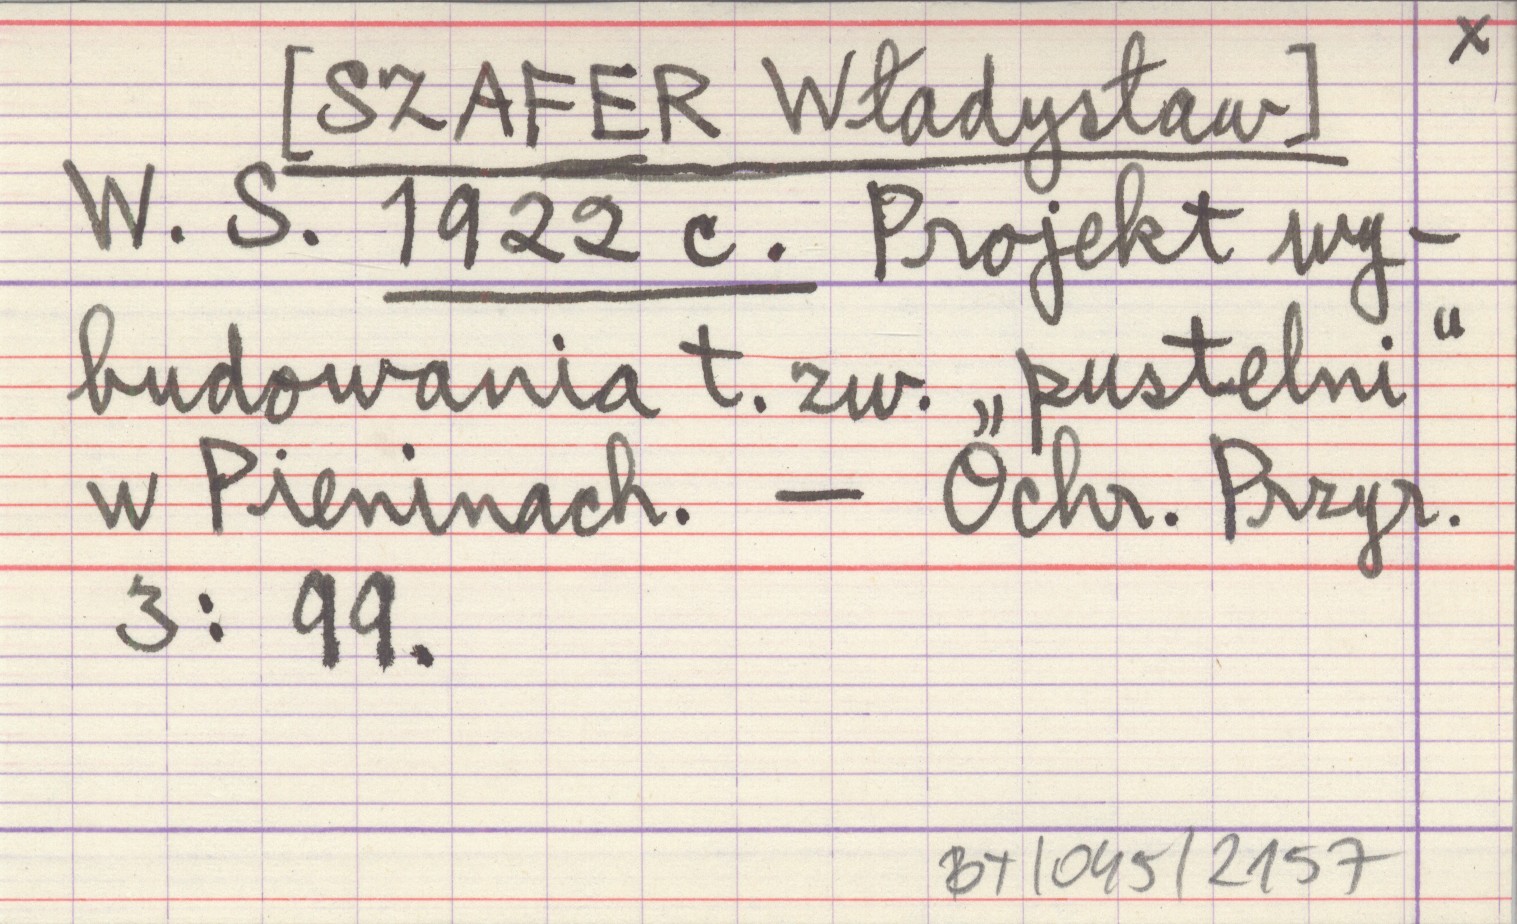 x
[SZAFER Władysław]
W. S. 1922 c. Projekt wy-
budowania t. zw. „pustelni“
w Pieninach. — Ochr. Przyr.
3: 99.
BT/045/2157